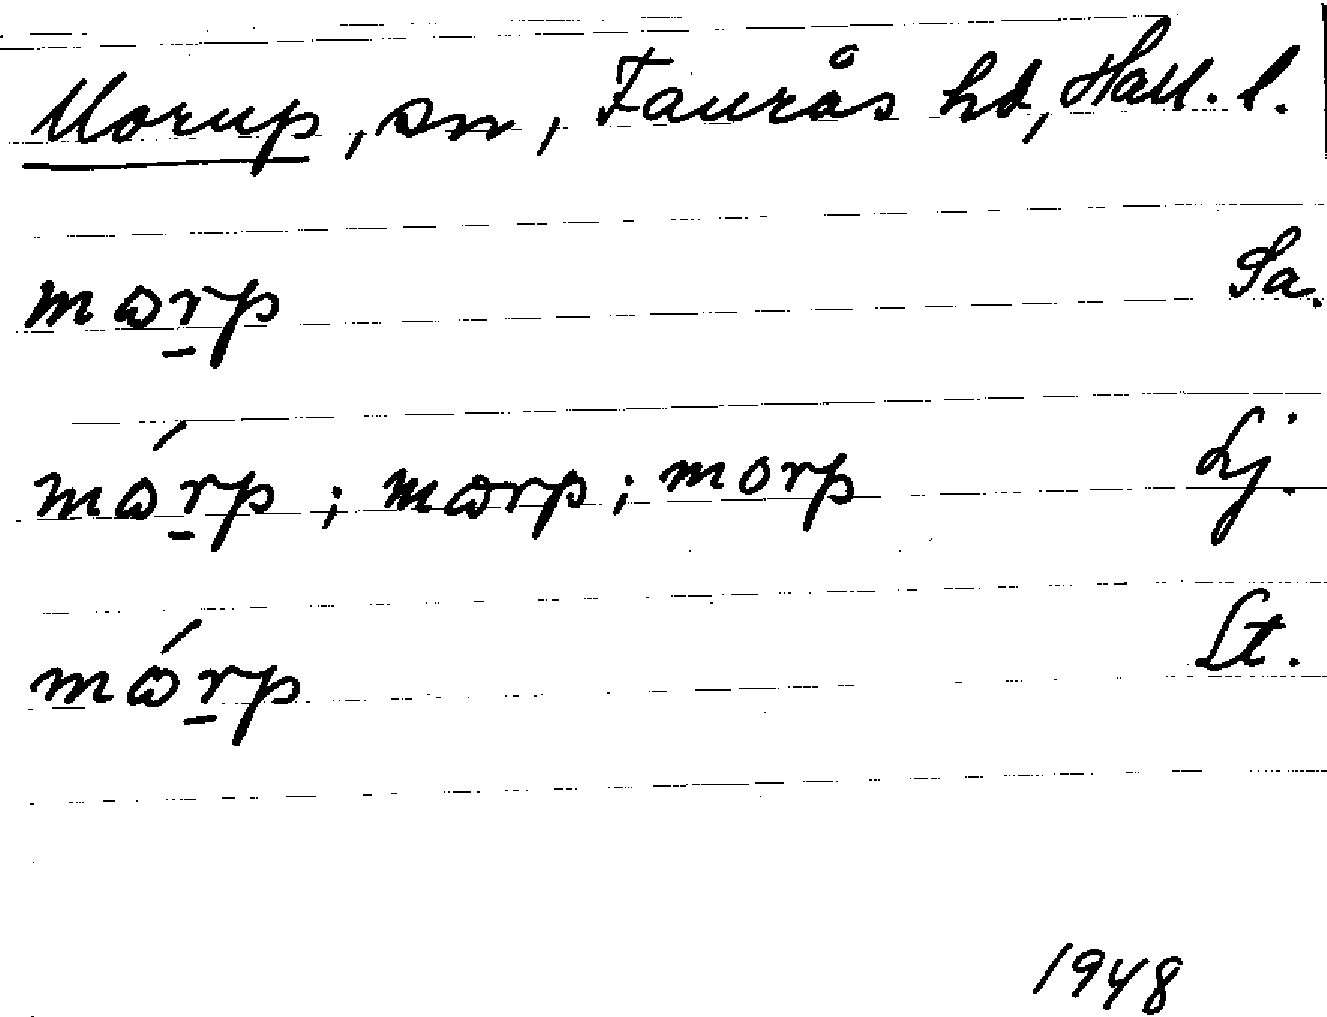 Morup, sn, Faurås hd, Hall. l.
mɷr̲p Sa.
mɷ́r̲p ; mɷrp ; morp Lj.
mɷ́r̲p Lt.
1948